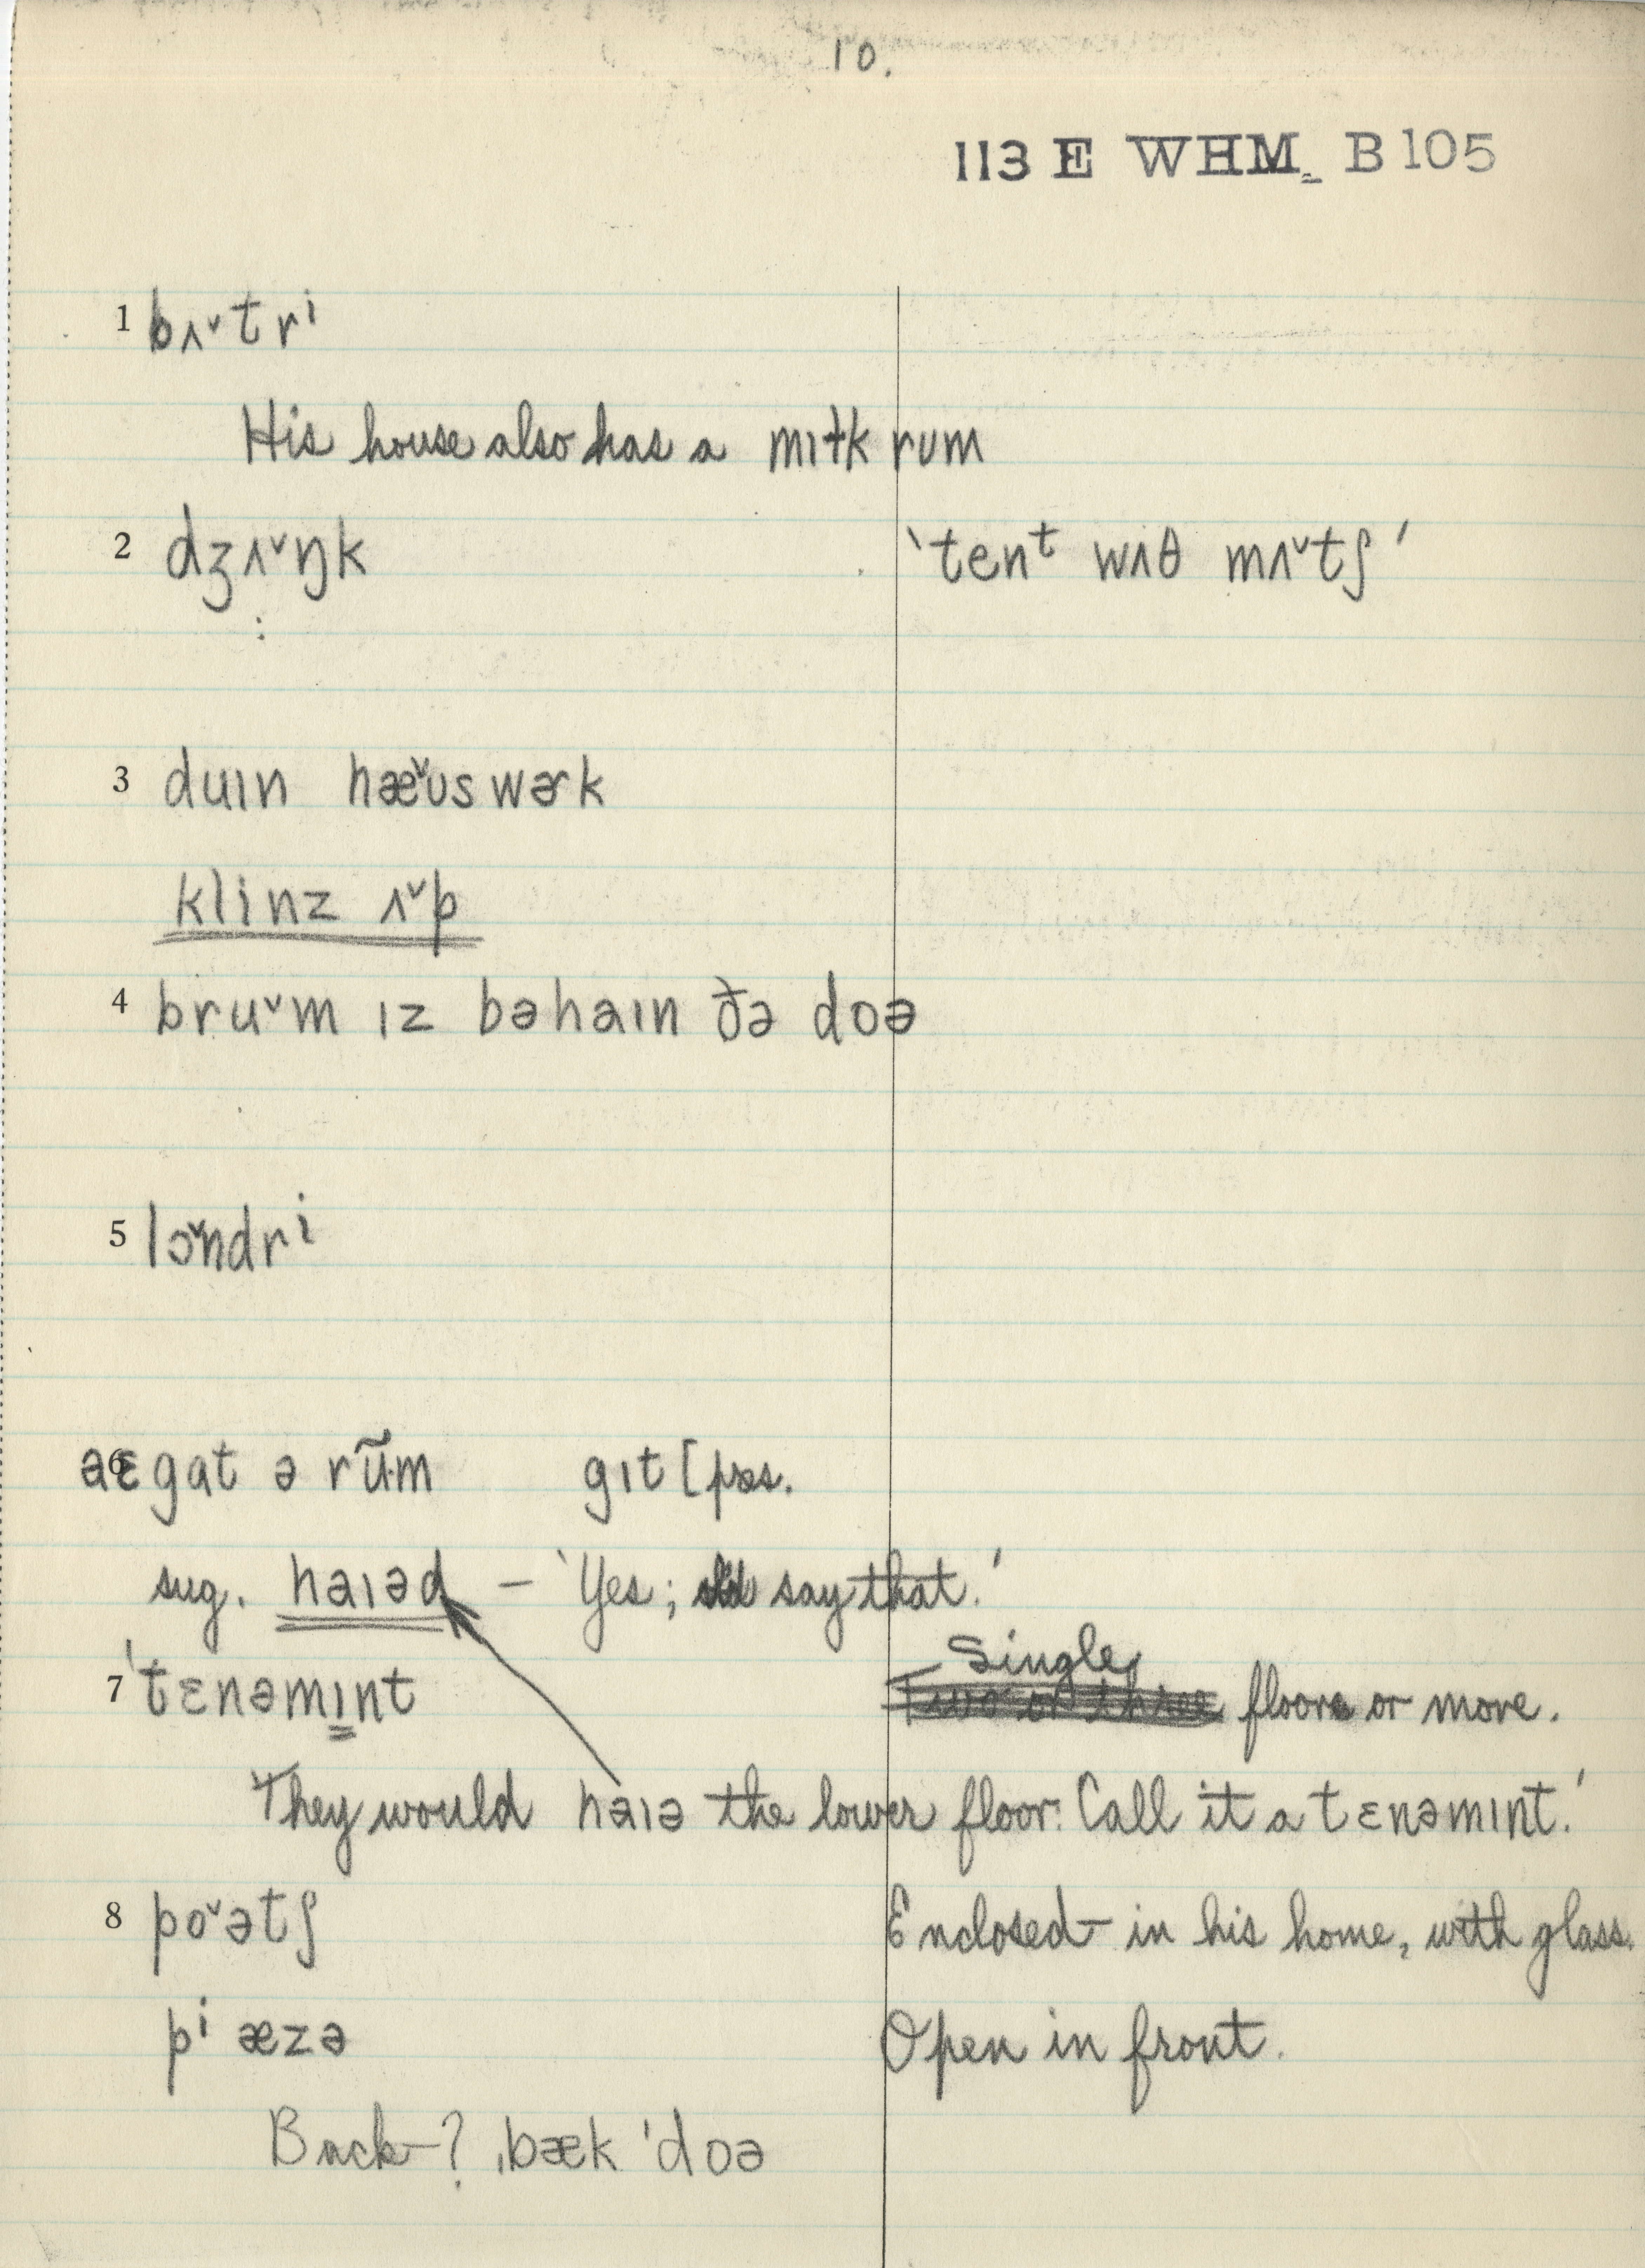 10.
113 E WHM B 105
1 bʌ˅trⁱ
His house also has a mɪɫk rum
2 dʒʌ˅ŋk 'tenᵗ wʌθ mʌ˅tʃ'
:
3 duɪn hæ˅ʊs wɚk
klinz ʌ˅p
4 bru˅m ɪz bəhaɪn ðə doə
5 lɔ˅ndrⁱ
6 gat ə rũm gɪt [pres.
sug. haɪəd – 'Yes; say that.'
Single
7 'tɛnəmɪnt Two or three floors or more.
'They would haɪə the lower floor. Call it a tɛnəmɪnt.'
8 po˅ətʃ Enclosed – in his home, with glass.
pⁱ æzə Open in front.
Back–? ˌbæk ˈdoə